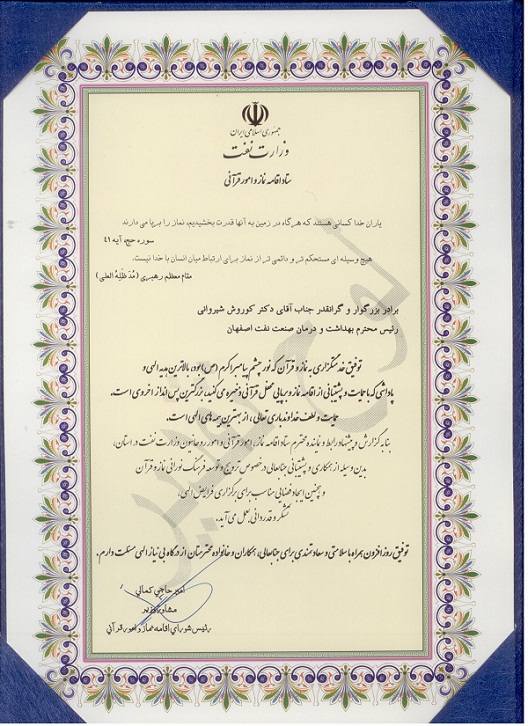 جمهوری اسلامی ایران
وزارت نفت
ستاد اقامه نماز و امور قرآنی
یاران خدا کسانی هستند که هرگاه در زمین به آنها قدرت بخشیدیم، نماز را برپا می دارند
سوره حج، آیه ۴۱
هیچ وسیله ای مستحکم تر و دائمی تر از نماز برای ارتباط میان انسان با خدا نیست.
مقام معظم رهبری (مُدّ ظِلُّهُ العالی)
برادر بزرگوار و گرانقدر جناب آقای دکتر کوروش شیروانی
رئیس محترم بهداشت و درمان صنعت نفت اصفهان
توفیق خدمتگزاری به نماز و قرآن که نور چشم پیامبر اکرم (ص) بوده، بالاترین هدیه الهی و
پاداشی که با حمایت و پشتیبانی از اقامه نماز و برپایی محافل قرآنی ذخیره می کنید، بزرگترین پس انداز اخروی است.
حمایت و لطف خداوند باری تعالی، از بهترین بیمه های الهی است.
بنا به گزارش و پیشنهاد رابط و نماینده محترم ستاد اقامه نماز، امور قرآنی و امور روحانیون وزارت نفت در استان،
بدین وسیله از همکاری و پشتیبانی جنابعالی در خصوص ترویج و توسعه فرهنگ نورانی نماز و قرآن
و همچنین ایجاد فضائی مناسب برای برگزاری فرایض الهی،
تشکر و قدردانی بعمل می آید.
توفیق روز افزون همراه با سلامتی و سعادتمندی برای جنابعالی، همکاران و خانواده محترمتان از درگاه بی نیاز الهی مسئلت دارم.
امیر حاجی کمالی
مشاور وزیر
رئیس شورای اقامه نماز و امور قرآنی
لوح تقدیر